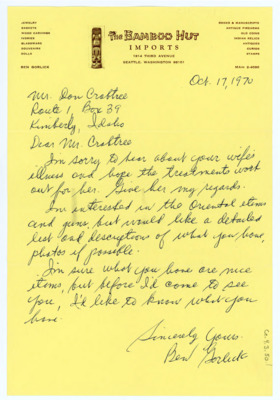 JEWELRY
BASKETS
WOOD CARVINGS
IVORIES
GLASSWARE
SOUVENIRS
DOLLS
BEN GORLICK
The BAMBOO HUT
IMPORTS
1914 THIRD AVENUE
SEATTLE, WASHINGTON 98101
BOOKS & MANUSCRIPTS
ANTIQUE FIREARMS
OLD COINS
INDIAN RELICS
ANTIQUES
STAMPS
MAIN
Oct. 17, 1970
Mr. Don Crabtree
Route 1 Box 39
Kimberly, Idaho
Dear Mr. Crabtree
I'm sorry to hear about your wife's
illness and hope the treatments work
out for her. Give her my regards.
I'm interested in the Oriental items
and guns, but would like a detailed
list and descriptions of what you have,
photos if possible.
I'm sure what you have are nice
items, but before I'd come to see
you, I'd like to know what you
have.
Sincerely Yours
Ben Gorlick